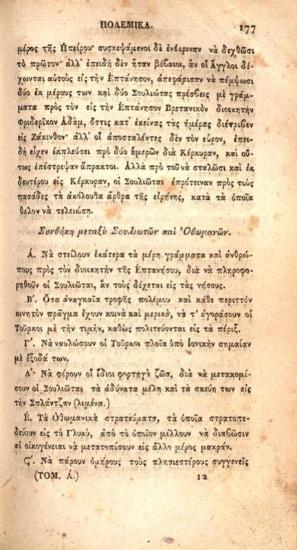 ΠΟΛΕΜΙΚΑ. 177
μέρος τῆς Ἠπείρου· συσκεψάμενοι δὲ ἐνέκριναν νὰ δεχθῶσι
τὸ πρῶτον· ἀλλ' ἐπειδὴ δὲν ἦσαν βέβαιοι, ἂν οἱ Ἄγγλοι δέ-
χωνται αὐτοὺς εἰς τὴν Ἑπτάνησον, ἀπεφάσισαν νὰ πέμψωσι
δύο ἐκ μέρους των καὶ δύο Σουλιώτας πρέσβεις μὲ γράμ-
ματα πρὸς τὸν εἰς τὴν Ἑπτάνησον Βρετανικὸν διοικητὴν
Φριδερῖκον Ἀδάμ, ὅστις κατ' ἐκείνας τὰς ἡμέρας διέτριβεν
εἰς Ζάκινθον· ἀλλ' οἱ ἀποσταλέντες δὲν τὸν εὗρον, ἐπει-
δὴ εἶχεν ἐκπλεύσει πρὸ δύο ἡμερῶν διὰ Κέρκυραν, καὶ οὕ-
τως ἐπέστρεψαν ἄπρακτοι. Ἀλλὰ πρὸ τοῦ νὰ σταλῶσι καὶ ἐκ
δευτέρου εἰς Κέρκυραν, οἱ Σουλιῶται ἐπρότειναν πρὸς τοὺς
πασάδες τὰ ἀκόλουθα ἄρθρα τῆς εἰρήνης, κατὰ τὰ ὁποῖα
ἤθελον νὰ τελειώσῃ.
Συνθήκη μεταξὺ Σουλιωτῶν καὶ Ὀθωμανῶν.
Α. Νὰ στείλουν ἑκάτερα τὰ μέρη γράμματα καὶ ἀνθρώ-
πους πρὸς τὸν διοικητὴν τῆς Ἑπτανήσου, διὰ νὰ πληροφο-
ρηθοῦν οἱ Σουλιῶται, ἂν τοὺς δέχεται εἰς τὰς νήσους.
Β΄. Ὅσα ἀναγκαῖα τροφῆς πολέμου καὶ κάθε περιττὸν
κινητὸν πρᾶγμα ἔχουν κοινὰ καὶ μερικὰ, νὰ τ' ἀγοράσουν οἱ
Τοῦρκοι μὲ τὴν τιμὴν, καθὼς πολιτεύονται εἰς τὰ πέριξ.
Γ΄. Νὰ ναυλώσουν οἱ Τοῦρκοι πλοῖα ὑπὸ Ἰονικὴν σημαίαν
μὲ ἔξοδά των.
Δ΄· Νὰ φέρουν οἱ ἴδιοι φορτηγὰ ζῶα, διὰ νὰ μετακομί-
σουν οἱ Σουλιῶται τὰ ἀδύνατα μέλη καὶ τὰ σκεύη των εἰς
τὴν Σπλάντζαν (λιμένα.)
Ε. Τὰ Ὀθωμανικὰ στρατεύματα, τὰ ὁποῖα στρατοπε-
δεύουν εἰς τὸ Γλυκὺ, ἀπὸ τὸ ὁποῖον μέλλουν νὰ διαβῶσιν
αἱ οἰκογένειαι νὰ μετατοπίσουν εἰς ἄλλο μέρος μακράν.
Ϛ΄. Νὰ πάρουν ὁμήρους τοὺς πλησιεστέρους συγγενεῖς
(ΤΟΜ. Α.) 12